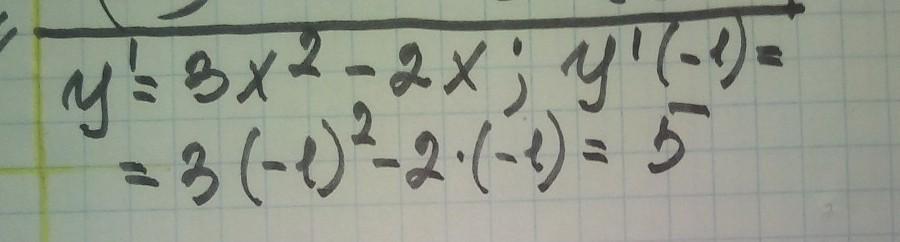 y' = 3x² - 2x; y'(-1) =
= 3(-1)² - 2·(-1) = 5